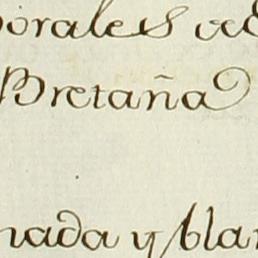 orales
Bretaña
nada y blan